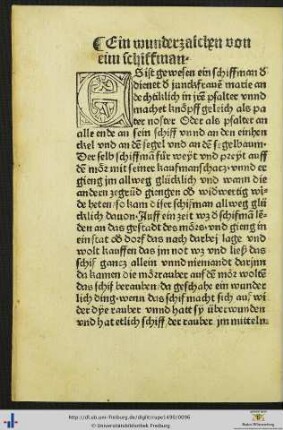 ¶ Ein wunderzaichen von
eim schiffman.
ES ist gewesen ein schiffman d̄
dienet d̄ junckfrauē marie an
dechtiklich in jrē psalter vnnd
machet knöpff geleich als pa
ter noster Oder als psalter an
alle ende an sein schiff vnnd an den einhen
ckel vnd an dē segel vnd an dē segelbaum.
Der selb schiffmā für weyt vnd preyt auff
dem mör mit seiner kaufmanschatz. vnnd er
gieng im allweg glücklich vnd wann die
andern zegrūd giengen ob widwertig wi-
de heten / so kam diser schifman allweg glü
cklich dauon. Auff ein zeit wz d̄ schifmā lē-
den an das gestadt des möres / vnd gieng in
ein stat ob dorf das nach darbej lage vnd
wolt kauffen das im not wz vnd ließ das
schif gancz allein vnnd niemandt darjnn
da kamen die mörrauber auf dē mör woltē
das schif berauben / da geschahe ein wunder
lich ding. wenn das schif macht sich auf wi
der dye rauber vnnd hatt sy überwunden
vnd hat etlich schiff der rauber jm mitteln
http://dl.ub.uni-freiburg.de/diglit/rupe1490/0096
© Universitätsbibliothek Freiburg
Baden-Württemberg